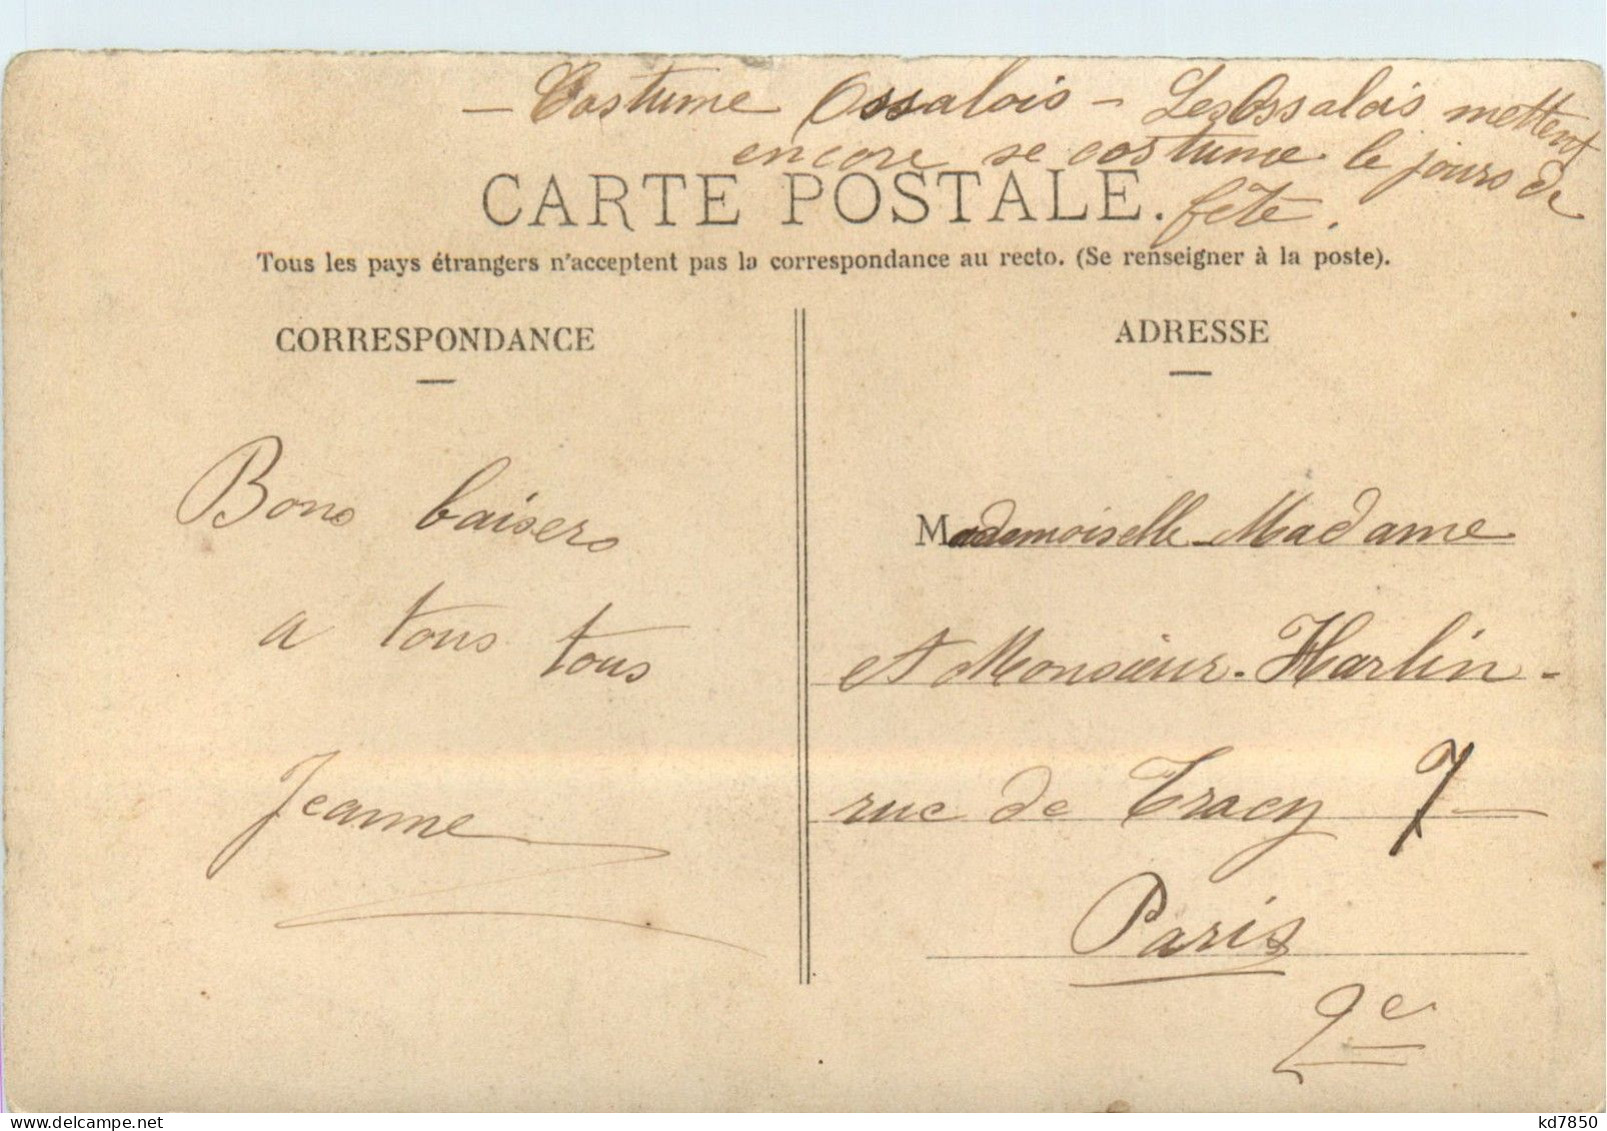 — Costume Ossalois — Les Ossalois mettent
encore se costume le jours de
fête.
CARTE POSTALE.
Tous les pays étrangers n'acceptent pas la correspondance au recto. (Se renseigner à la poste).
CORRESPONDANCE
Bons baisers
a tous tous
Jeanne
ADRESSE
Mademoiselle Madame
et Monsieur. Harlin -
rue de Tracy 7
Paris
2e
kd7850